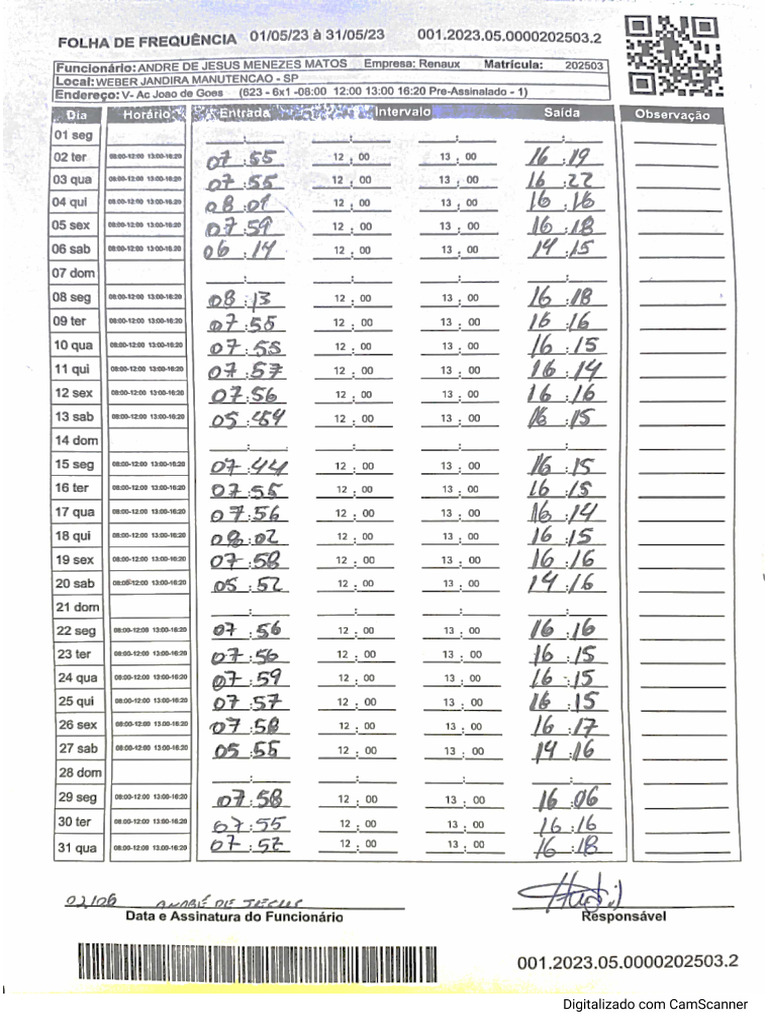 FOLHA DE FREQUÊNCIA 01/05/23 à 31/05/23 001.2023.05.0000202503.2
Funcionário: ANDRE DE JESUS MENEZES MATOS Empresa: Renaux Matrícula: 202503
Local: WEBER JANDIRA MANUTENCAO - SP
Endereço: V- Ac Joao de Goes (623 - 6x1 -08:00 12:00 13:00 16:20 Pre-Assinalado - 1)
Dia Horário Entrada Intervalo Saída Observação
01 seg : : : :
02 ter 08:00-12:00 13:00-16:20 07:55 12 : 00 13 : 00 16:19
03 qua 08:00-12:00 13:00-16:20 07:55 12 : 00 13 : 00 16:22
04 qui 08:00-12:00 13:00-16:20 08:01 12 : 00 13 : 00 16:16
05 sex 08:00-12:00 13:00-16:20 07:59 12 : 00 13 : 00 16:18
06 sab 08:00-12:00 13:00-16:20 06:14 12 : 00 13 : 00 14:15
07 dom : : : :
08 seg 08:00-12:00 13:00-16:20 08:13 12 : 00 13 : 00 16:18
09 ter 08:00-12:00 13:00-16:20 07:55 12 : 00 13 : 00 16:16
10 qua 08:00-12:00 13:00-16:20 07:55 12 : 00 13 : 00 16:15
11 qui 08:00-12:00 13:00-16:20 07:57 12 : 00 13 : 00 16:14
12 sex 08:00-12:00 13:00-16:20 07:56 12 : 00 13 : 00 16:16
13 sab 08:00-12:00 13:00-16:20 05: 12 : 00 13 : 00 16:15
14 dom : : : :
15 seg 08:00-12:00 13:00-16:20 07:44 12 : 00 13 : 00 16:15
16 ter 08:00-12:00 13:00-16:20 07:55 12 : 00 13 : 00 16:15
17 qua 08:00-12:00 13:00-16:20 07:56 12 : 00 13 : 00 16:14
18 qui 08:00-12:00 13:00-16:20 08:02 12 : 00 13 : 00 16:15
19 sex 08:00-12:00 13:00-16:20 07:58 12 : 00 13 : 00 16:16
20 sab 08:00-12:00 13:00-16:20 05:52 12 : 00 13 : 00 14:16
21 dom : : : :
22 seg 08:00-12:00 13:00-16:20 07:56 12 : 00 13 : 00 16:16
23 ter 08:00-12:00 13:00-16:20 07:56 12 : 00 13 : 00 16:15
24 qua 08:00-12:00 13:00-16:20 07:59 12 : 00 13 : 00 16:15
25 qui 08:00-12:00 13:00-16:20 07:57 12 : 00 13 : 00 16:15
26 sex 08:00-12:00 13:00-16:20 07:58 12 : 00 13 : 00 16:17
27 sab 08:00-12:00 13:00-16:20 05:55 12 : 00 13 : 00 14:16
28 dom : : : :
29 seg 08:00-12:00 13:00-16:20 07:58 12 : 00 13 : 00 16:06
30 ter 08:00-12:00 13:00-16:20 07:55 12 : 00 13 : 00 16:16
31 qua 08:00-12:00 13:00-16:20 07:52 12 : 00 13 : 00 16:18
02/06 ANDRÉ DE JESUS
Data e Assinatura do Funcionário Responsável
001.2023.05.0000202503.2
Digitalizado com CamScanner